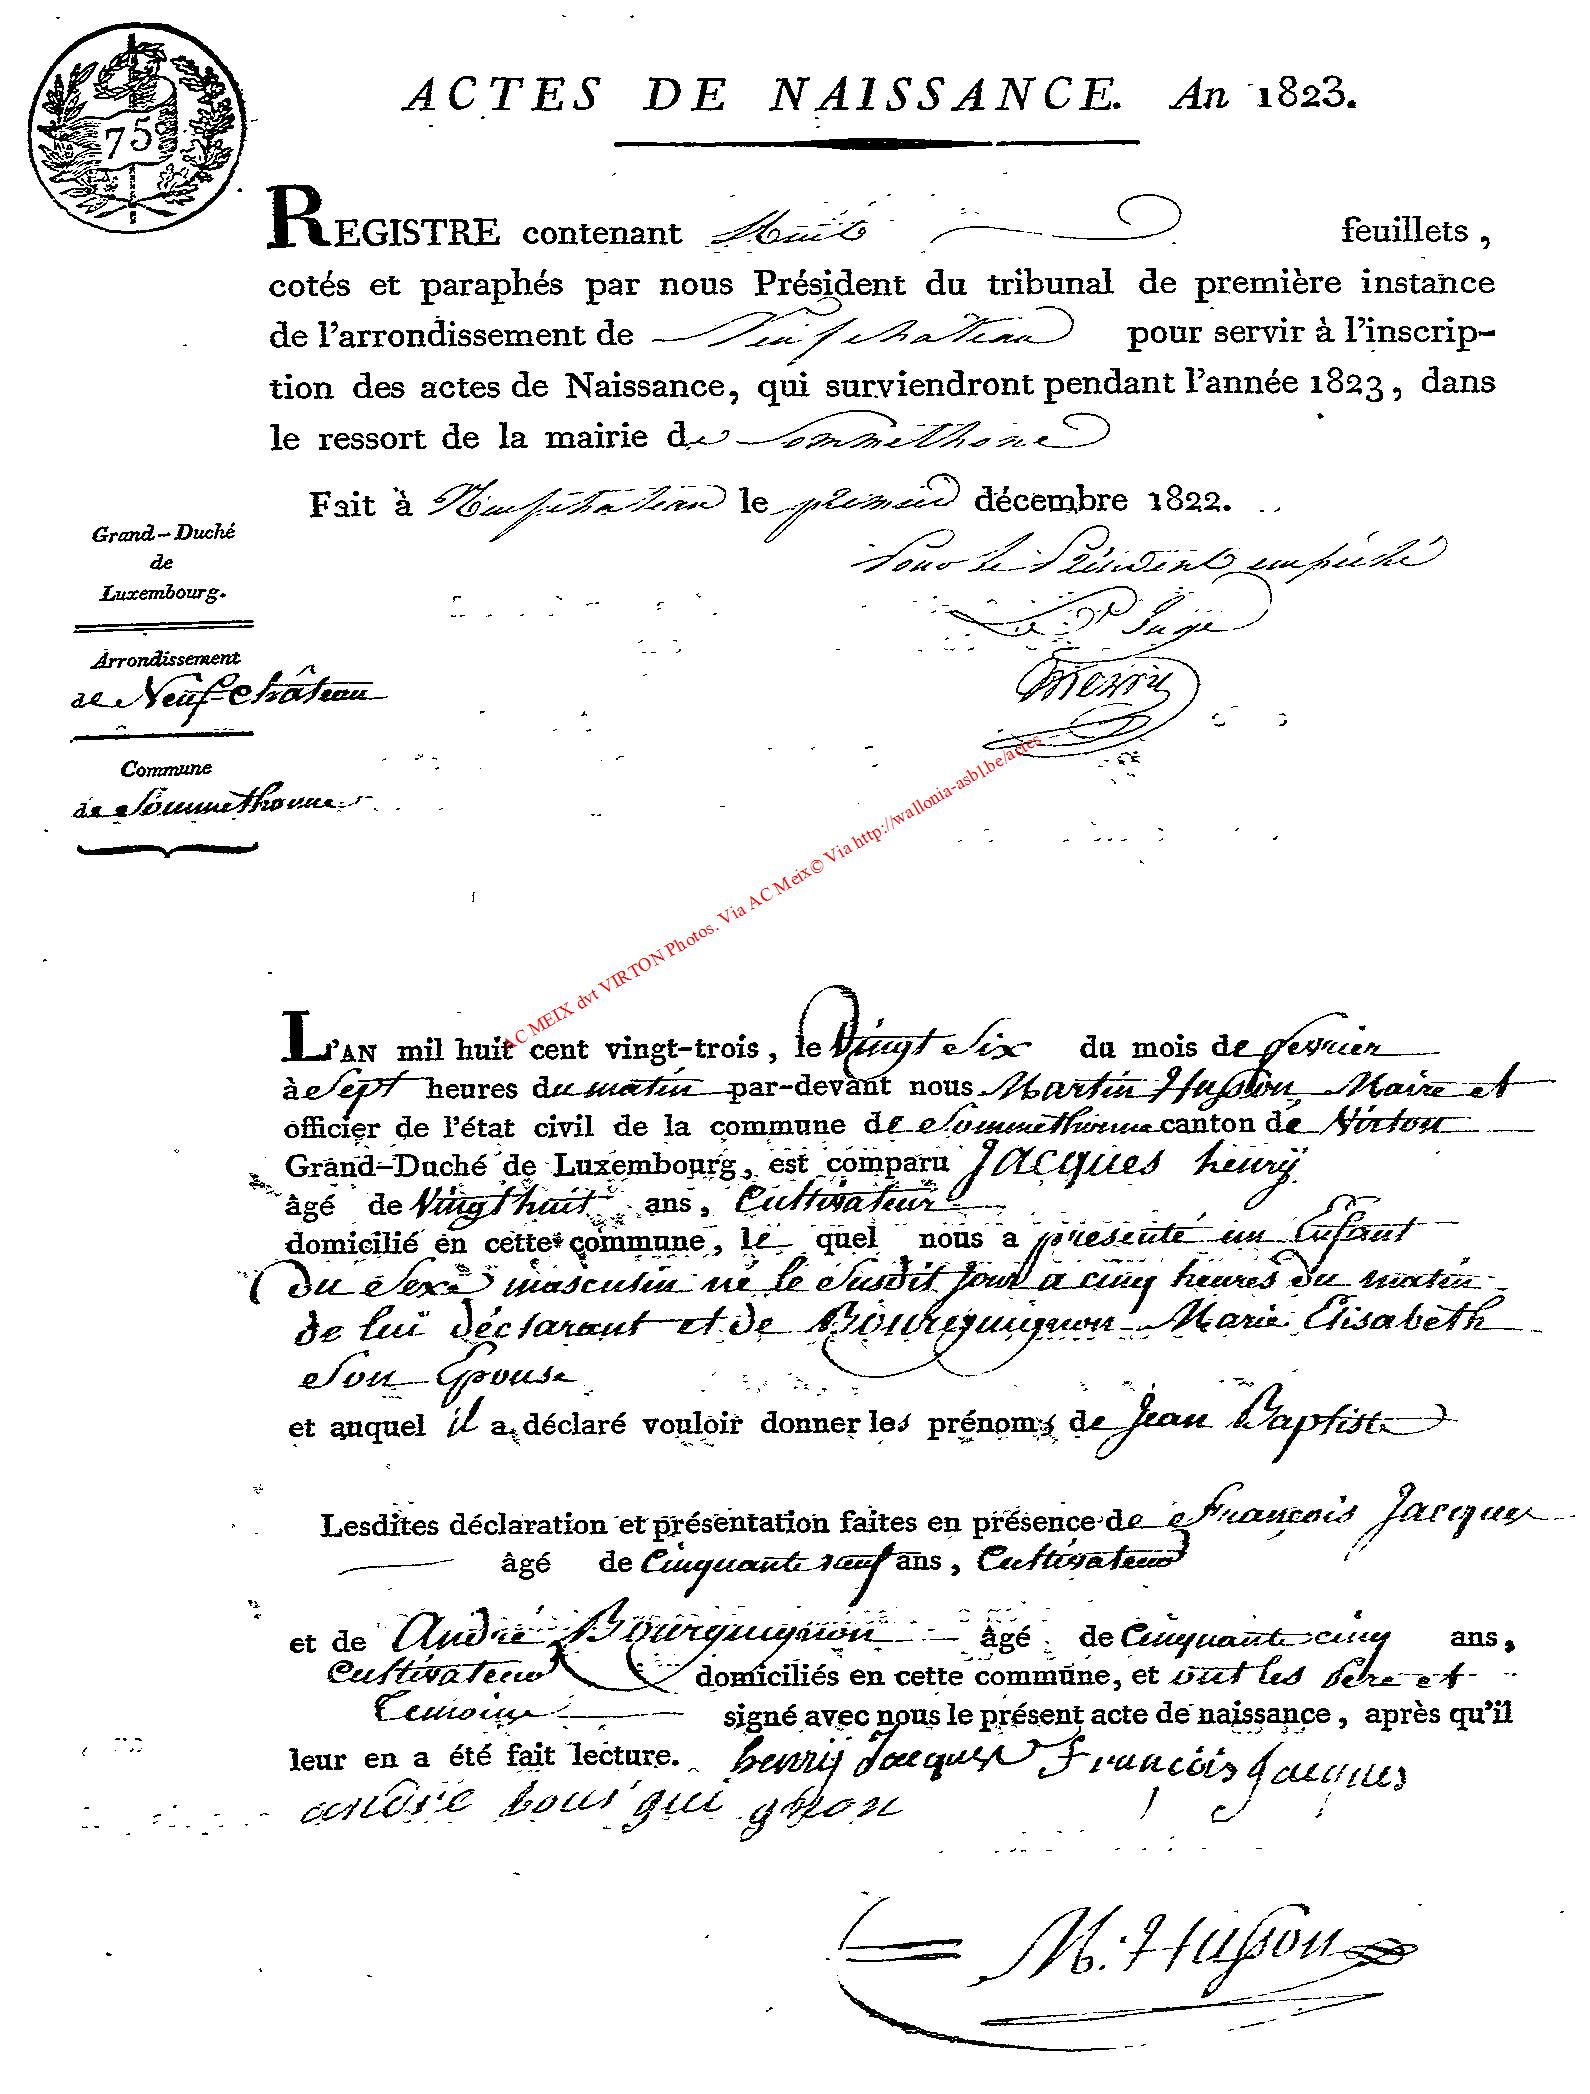 75
ACTES DE NAISSANCE. An 1823.
REGISTRE contenant huit feuillets,
cotés et paraphés par nous Président du tribunal de première instance
de l'arrondissement de Neufchateau pour servir à l'inscrip-
tion des actes de Naissance, qui surviendront pendant l'année 1823, dans
le ressort de la mairie de Sommethone
Fait à Neufchateau le premier décembre 1822.
Pour le Président empêché
Le Juge
Henry
Grand-Duché
de
Luxembourg.
Arrondissement
de Neufchâteau
Commune
de Sommethonne
AC MEIX dvt VIRTON Photos. Via AC Meix© Via http://wallonia-asbl.be/actes
L'AN mil huit cent vingt-trois, le Vingt Six du mois de fevrier
à Sept heures du matin par-devant nous Martin Husson Maire et
officier de l'état civil de la commune de Sommethonne canton de Virton
Grand-Duché de Luxembourg, est comparu Jacques henry
âgé de Vingt huit ans, Cultivateur
domicilié en cette commune, le quel nous a présenté un Enfant
du Sexe masculin né le Susdit Jour a cinq heures du matin
de lui déclarant et de Bourguignon Marie Elisabeth
Son Epouse
et auquel il a déclaré vouloir donner les prénoms de Jean Baptiste
Lesdites déclaration et présentation faites en présence de François Jacques
âgé de Cinquante neuf ans, Cultivateur
et de André Bourguignon âgé de Cinquante cinq ans,
Cultivateur domiciliés en cette commune, et ont les père et
Temoins signé avec nous le présent acte de naissance, après qu'il
leur en a été fait lecture. henry Jacques François Jacques
andré bourguignon
M. Husson